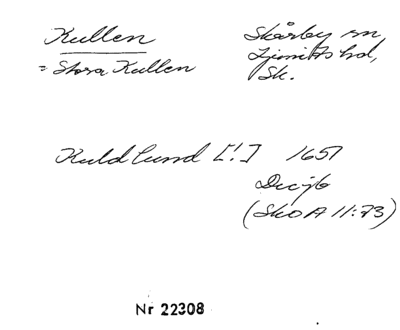 Kullen
= Stora Kullen
Skårby sn,
Ljunits hd,
Sk.
Kuldlund [!] 1651
Decjb
(SkoA 11:73)
Nr 22308